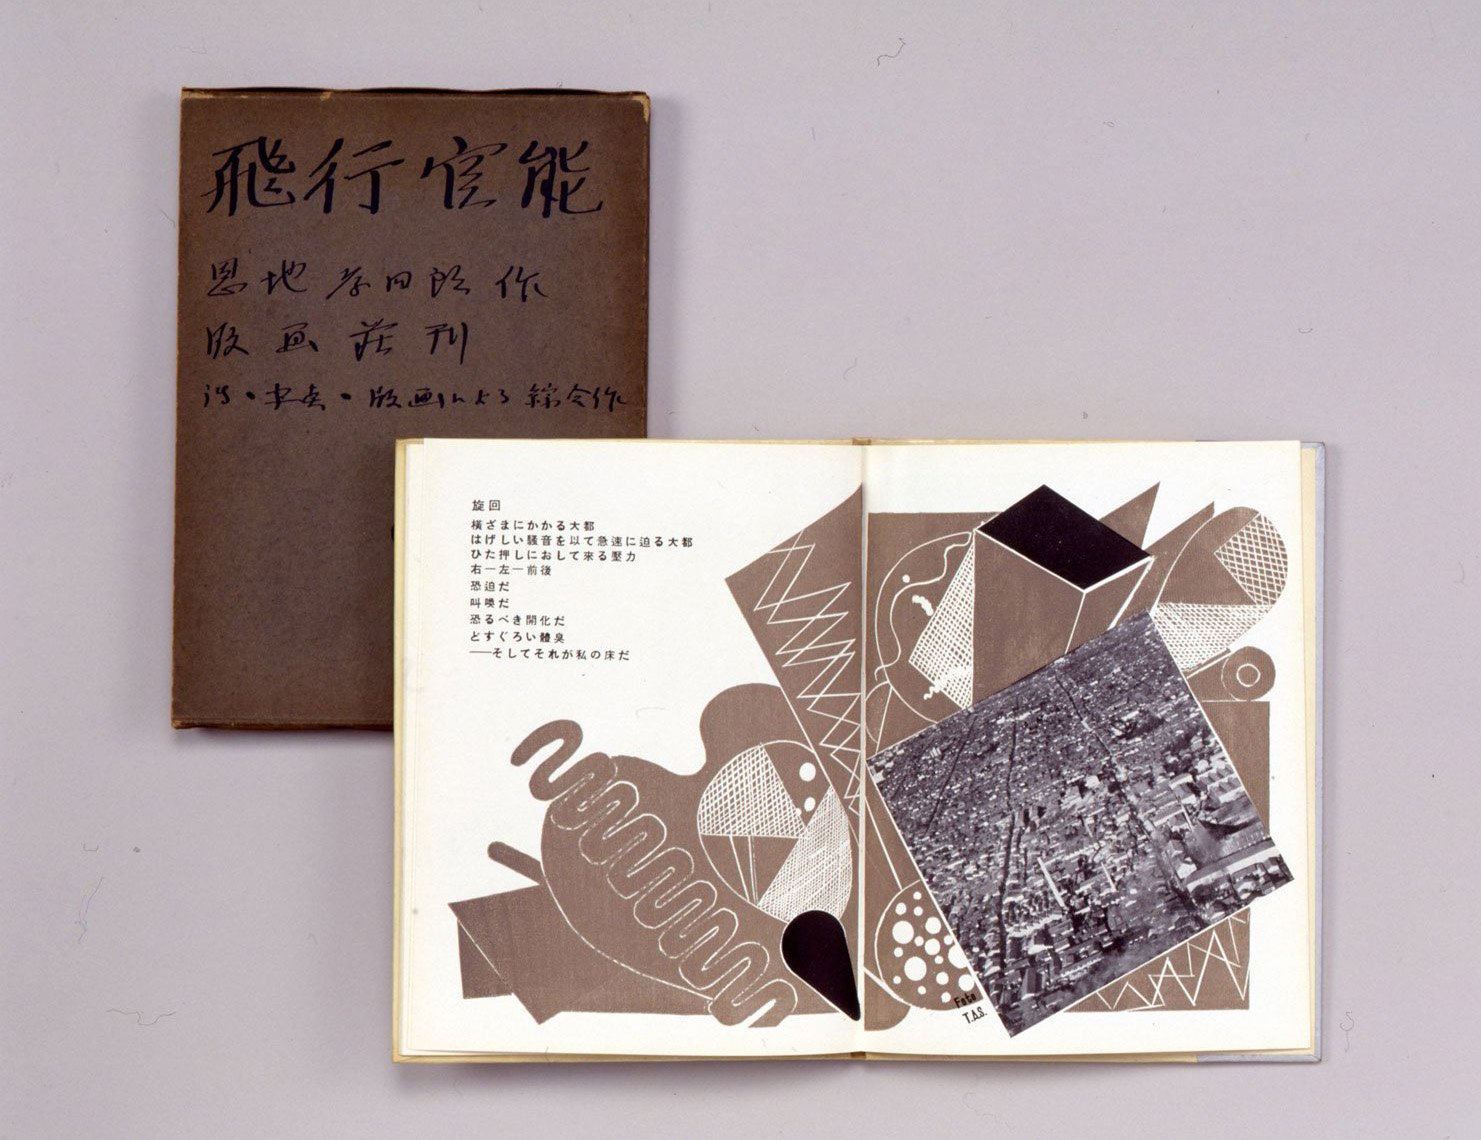 飛行官能
恩地孝四郎作
版画荘刊
詩・写真・版画による綜合作
旋回
横ざまにかかる大都
はげしい騒音を以て急速に迫る大都
ひた押しにおして來る壓力
右―左―前後
恐迫だ
叫喚だ
恐るべき開化だ
どすぐろい體臭
――そしてそれが私の床だ
Foto
T.A.S.